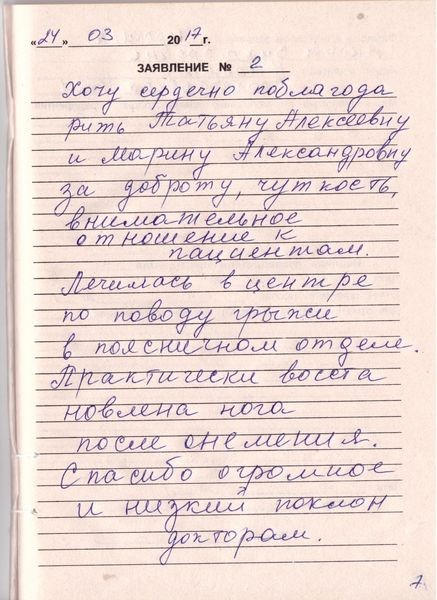 «24» 03 2017 г.
ЗАЯВЛЕНИЕ № 2
Хочу сердечно поблагода
рить Татьяну Алексеевну
и Марину Александровну
за доброту, чуткость,
внимательное
отношение к
пациентам.
Лечилась в центре
по поводу грыжи
в поясничном отделе.
Практически восста
новлена нога
после онемения.
Спасибо огромное
и низкий поклон
докторам.
7